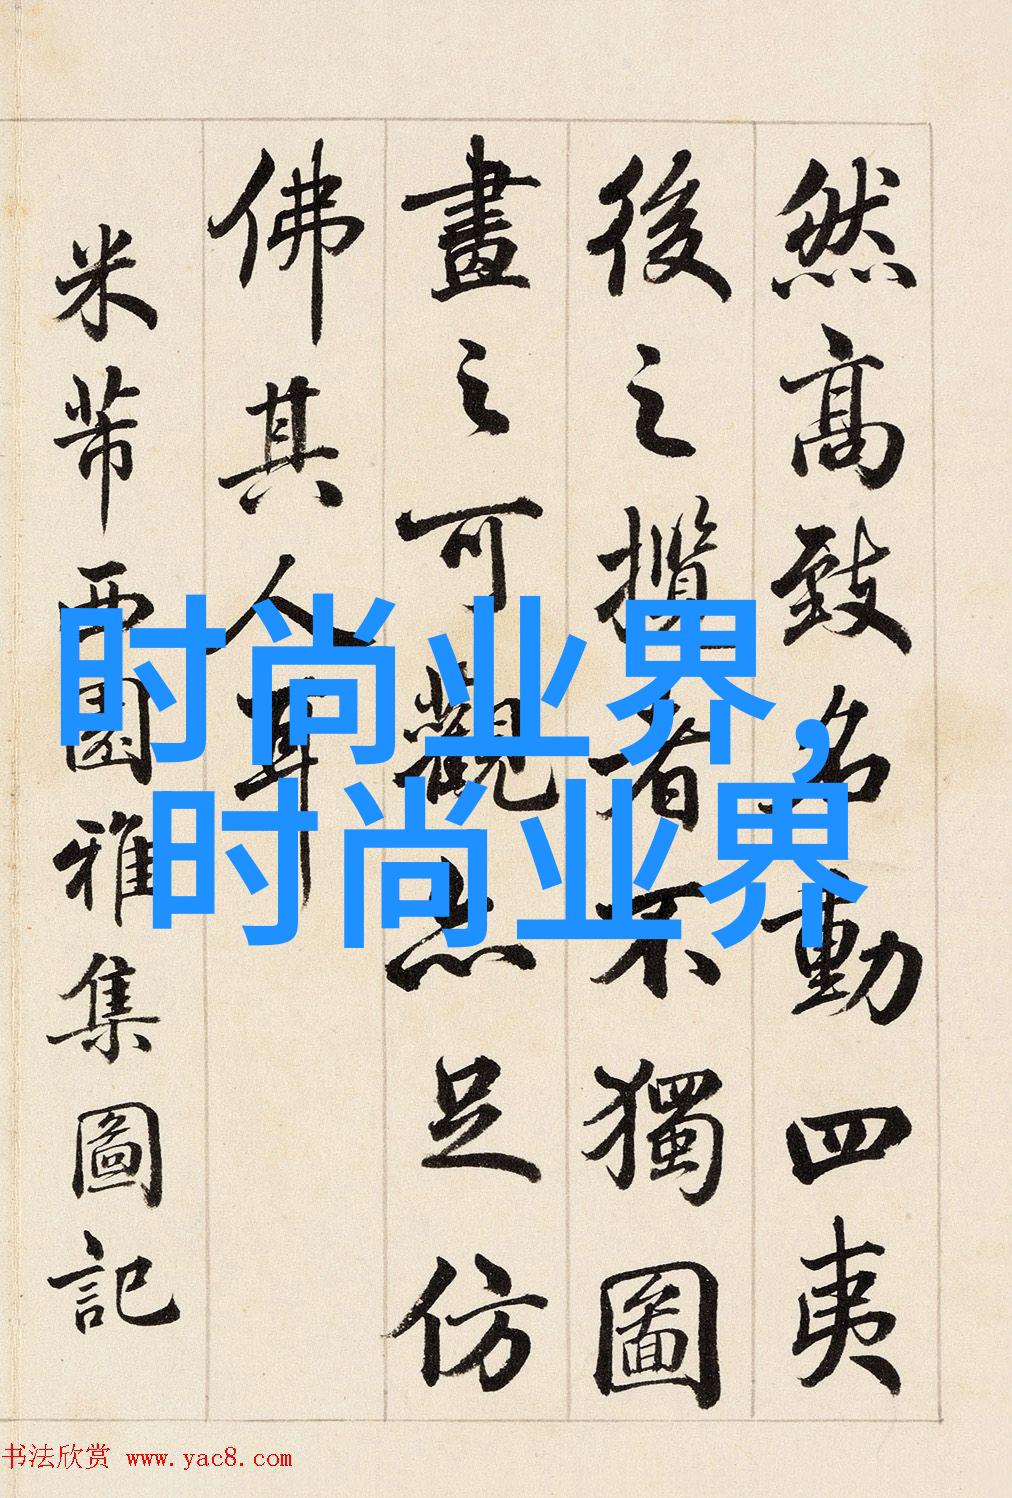 然高致名動四夷
後之攬者不獨圖
畫之可觀亦足仿
佛其人耳
米芾西園雅集圖記
时尚业界，
时尚业界
书法欣赏 www.yac8.com